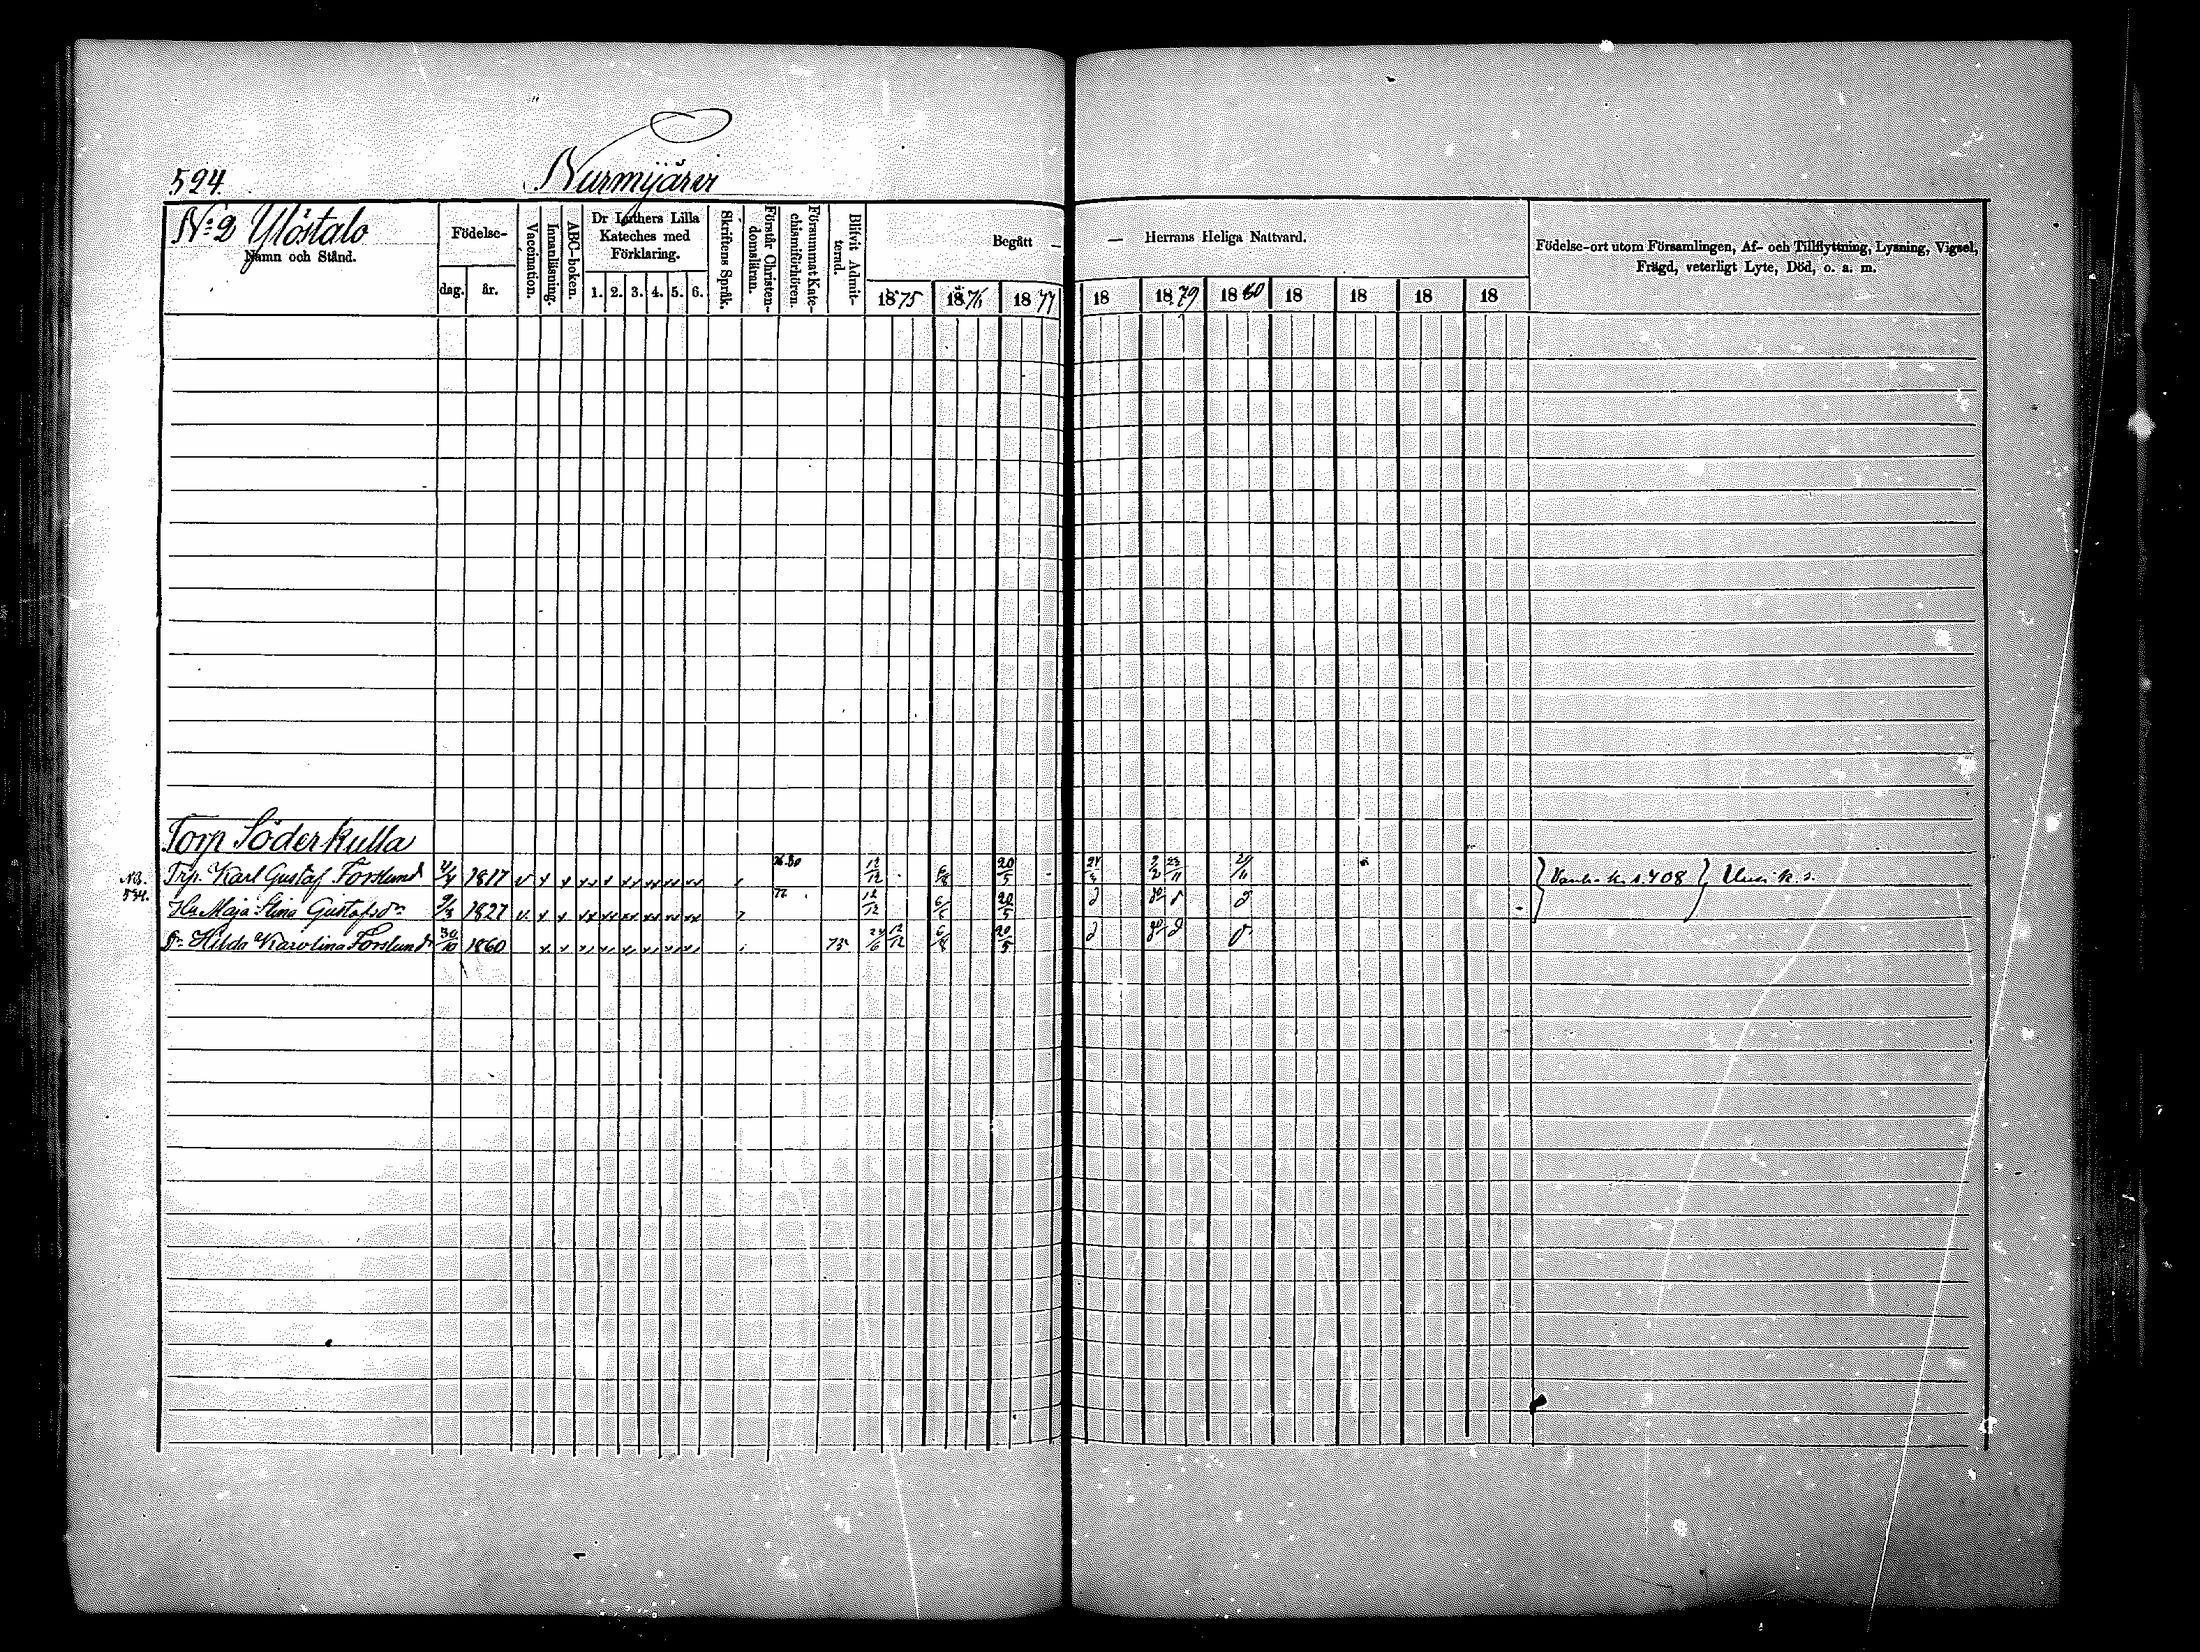 594.
Nurmijärvi
No 2 Ylöstalo
Namn och Stånd.
Födelse-
dag. år.
Vaccination.
Innanläsning.
ABC-boken.
Dr Luthers Lilla
Kateches med
Förklaring.
1. 2. 3. 4. 5. 6.
Skriftens Språk.
Förstår Christen-
domslären.
Försummat Kate-
chismiförhören.
Blifvit Admit-
terad.
Begått —
— Herrans Heliga Nattvard.
1875 1876 1877 18 1879 1880 18 18 18 18
Födelse-ort utom Församlingen, Af- och Tillflyttning, Lysning, Vigsel,
Frägd, veterligt Lyte, Död, o. a. m.
Torp Söderkulla
Trp. Karl Gustaf Forslund 1817 76.80 12/12 20/5
NB. 594.
Hu Maja Stina Gustafsdr 1827 77. 12/12 6/8 20/5
Dr Hilda Karolina Forslund 30/10 1860 75 24/6 12/12 6/8 20/5
Vanh. k. s. 408 Uusi k. s.